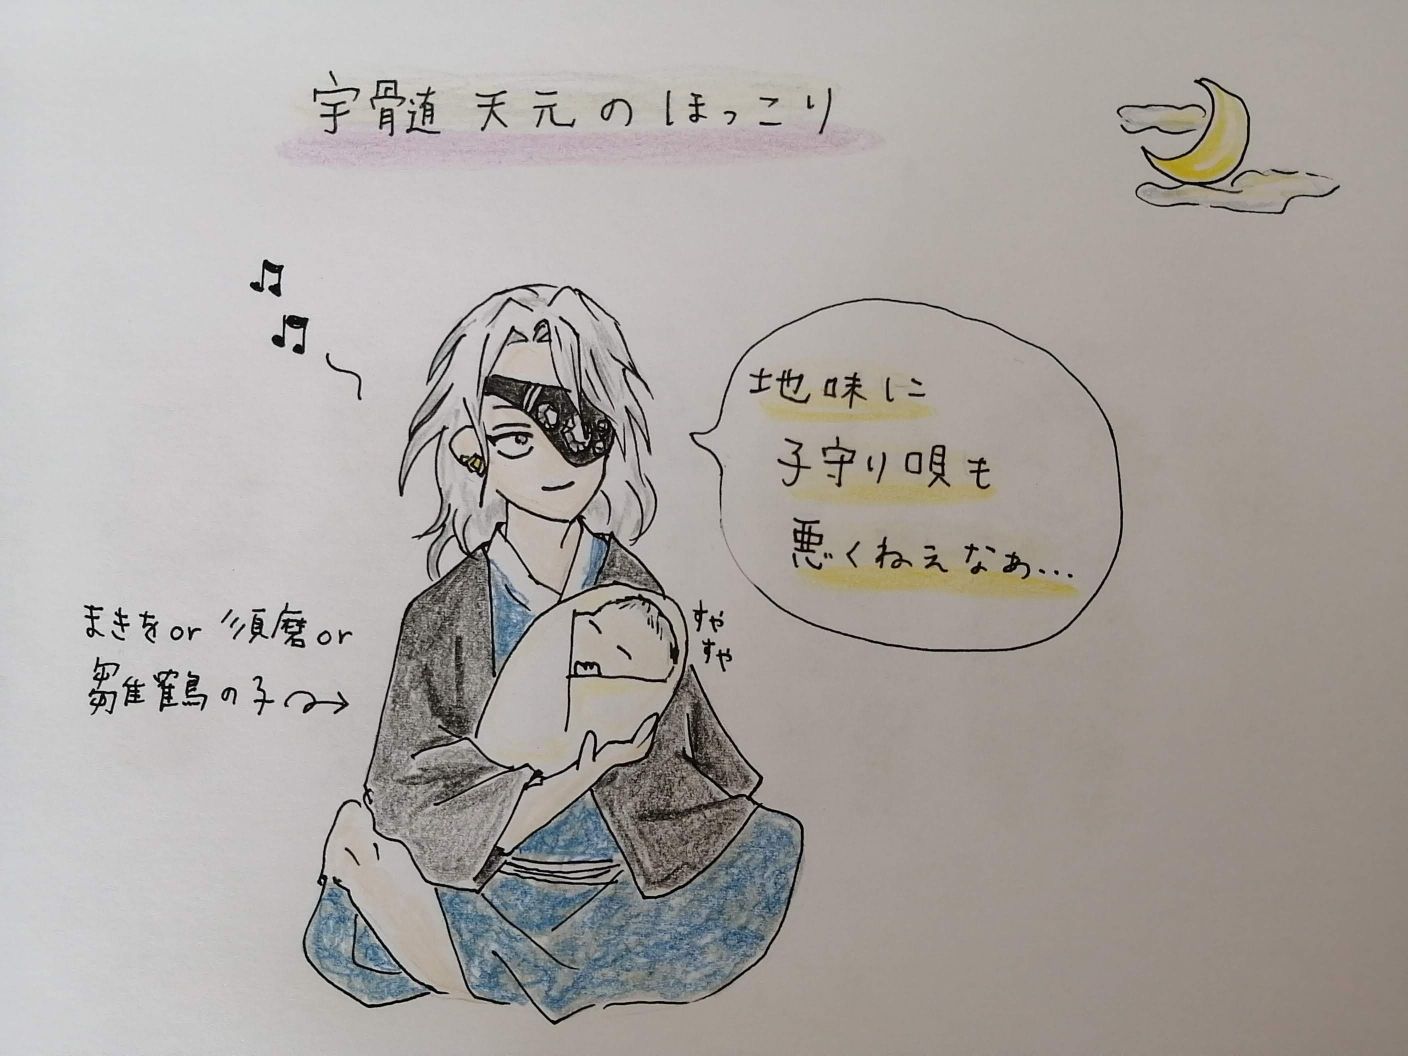 宇髄天元のほっこり
地味に
子守り唄も
悪くねえなあ…
すや
すや
まきをor須磨or
雛鶴の子